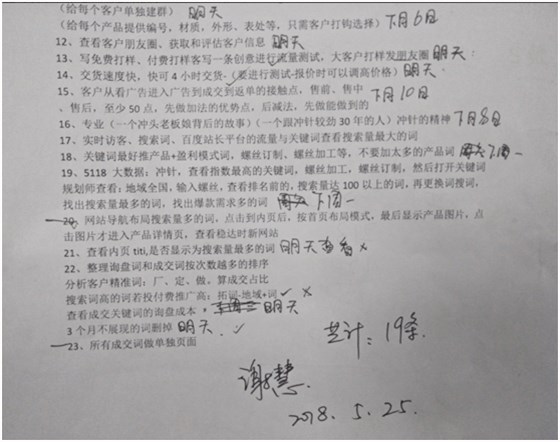 （给每个客户单独建群） 明天
（给每个产品提供编号，材质，外形、表处等，只需客户打钩选择）下月6日
12、查看客户朋友圈、获取和评估客户信息 明天
13、写免费打样、付费打样客写一条创意进行流量测试，大客户打样发朋友圈 明天
14、交货速度快，快可4小时交货-（要进行测试-报价时可以调高价格） 明天
15、客户从看广告进入广告到成交到返单的接触点，售前、售中 下月10日
、售后，至少50点，先做加法的优势点，后减法，先做能做到的
16、专业（一个冲头老板娘背后的故事）（一个跟冲针较劲30年的人）冲针的精神 下月8日
17、实时访客、搜索词、百度站长平台的流量与关键词查看搜索量最大的词
18、关键词最好推产品+盈利模式词，螺丝订制、螺丝加工等，不要加太多的产品词 下周一
19、5118 大数据：冲针，查看指数最高的关键词，螺丝加工，螺丝订制，然后打开关键词
规划师查看：地域全国，输入螺丝，查看排名前的，搜索量达100以上的词，再更换词搜词，
找出搜索量最多的词，找出爆款需求多的词 下周一
20、网站导航布局搜索量多的词，点击到内页后，按首页布局模式，最后显示产品图片，点
击图片才进入产品详情页，查看稳达时新网站
21、查看内页titi,是否显示为搜索量最多的词 明天查看 ×
22、整理询盘词和成交词按次数越多的排序
分析客户精准词：厂、定、做、算成交占比
搜索词高的词若投付费推广高：拓词-地域+词 ✓ ×
查看成交关键词的询盘成本， 明天
3个月不展现的词删掉 明天. ✓
23、所有成交词做单独页面
共计：19条
谢慧.
2018.5.25.